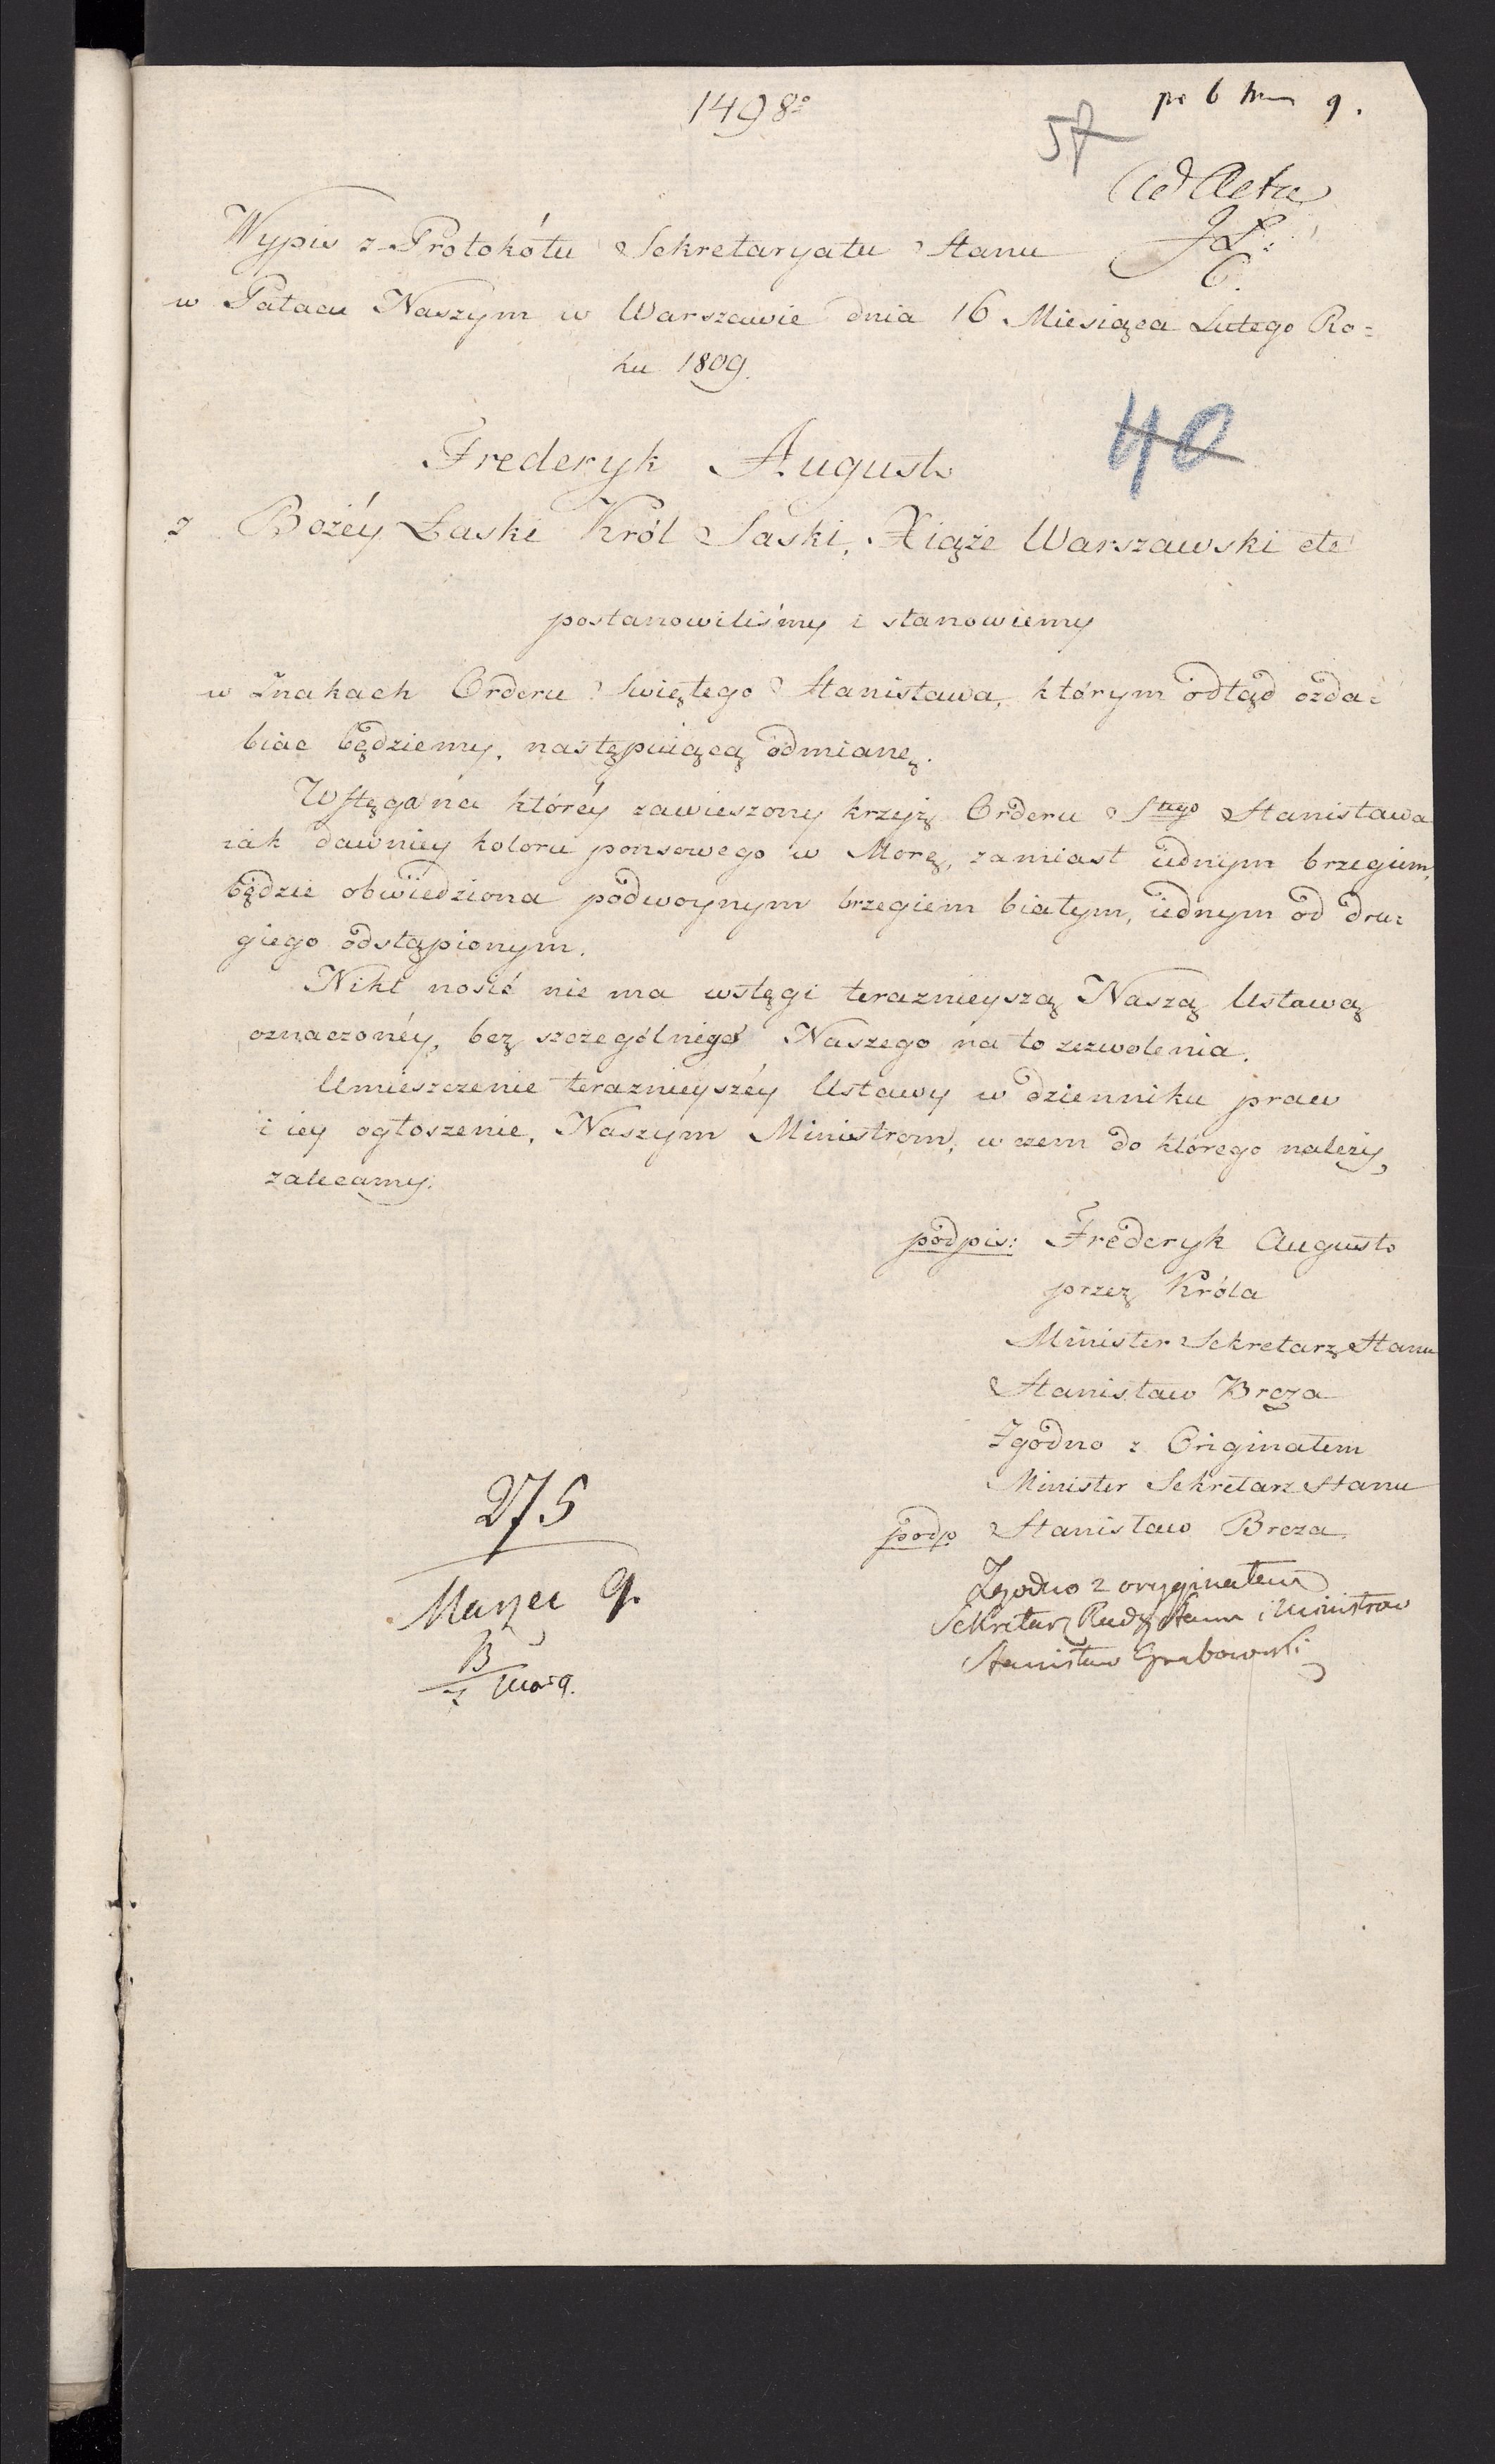 1498
57
Ad Acta
Wypis z Protokółu Sekretaryatu Stanu
w Pałacu Naszym w Warszawie dnia 16 Miesiąca Lutego Ro=
ku 1809.
40
Frederyk August
z Bożéy Łaski Król Saski, Xiąże Warszawski etc
postanowiliśmy i stanowiemy
w Znakach Orderu Swiętego Stanisława, którym odtąd ozda=
biac będziemy, następuiącą odmianę.
Wstęga na któréy zawieszony krzyż Orderu Stego Stanisława
iak dawniey koloru ponsowego w Morę, zamiast iednym brzegiem,
będzie obwiedziona podwoynym brzegiem białym, iednym od dru=
giego odstąpionym.
Nikt nosić nie ma wstęgi teraznieyszą Naszą Ustawą
oznaczonéy, bez szczególnego Naszego na to zezwolenia.
Umieszczenie teraznieyszéy Ustawy w dzienniku praw
i iey ogłoszenie, Naszym Ministrom, w czem do którego należy,
zalecamy.
podpis: Frederyk August
przez Króla
Minister Sekretarz Stanu
Stanisław Breza
Zgodno z Originałem
Minister Sekretarz Stanu
podp Stanisław Breza
Zgodno z oryginałem
Sekretarz Rady Stanu i Ministrow
Stanisław Grabowski
275
Marzec 9.